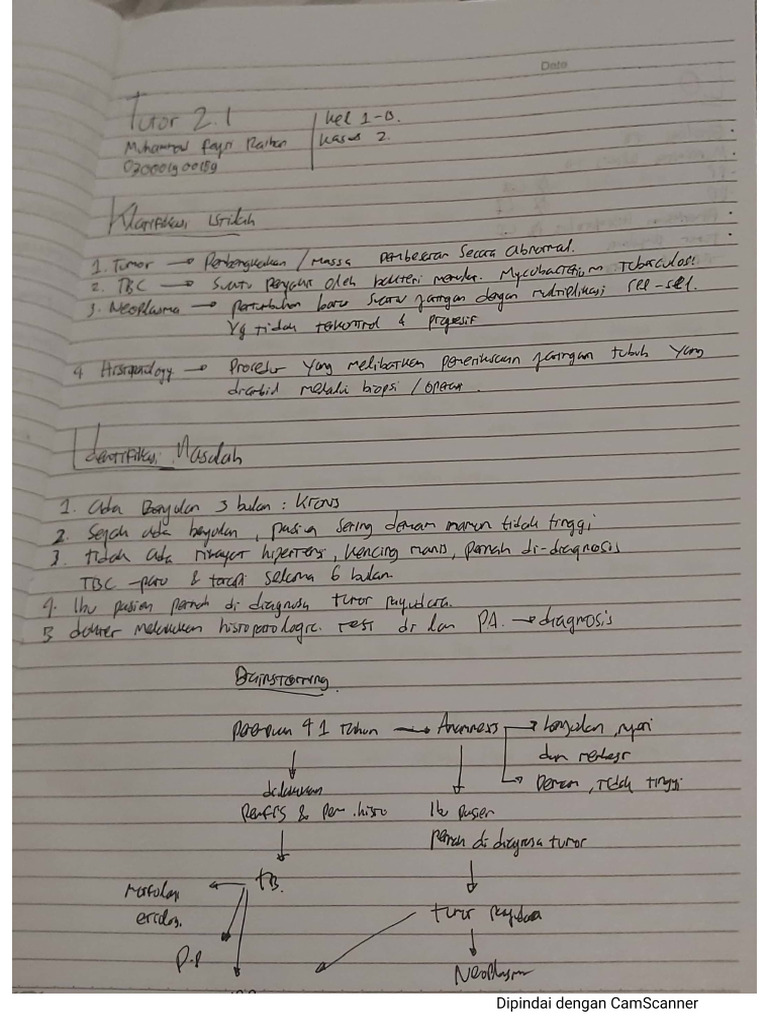 Date
Tutor 2.1
Kel 1-B.
Muhammad Raihan
Kasus 2.
Klarifikasi istilah
1. Tumor → Pembengkakan / Massa pembesaran secara abnormal.
2. TBC → Suatu penyakit oleh bakteri menular. Mycobacterium Tuberculosi
3. Neoplasma → pertumbuhan baru suatu jaringan dengan multiplikasi sel-sel.
Yg tidak terkontrol & progresif
4 → Prosedur yang melibatkan pemeriksaan jaringan tubuh yang
diambil melalui biopsi / operasi.
Identifikasi Masalah
1. Ada Benjolan 3 bulan : Kronis
2. Sejak ada benjolan, pasien sering demam namun tidak tinggi
3. tidak ada riwayat hipertensi, kencing manis, pernah di-diagnosis
TBC-paru & terapi selama 6 bulan.
4. Ibu pasien pernah di diagnosa tumor payudara.
5 dokter melakukan histopatologic. Test di lab PA. → diagnosis
Brainstorming
perempuan 41 Tahun → Anamnesis → benjolan, nyeri
dan
→ Demam, tidak tinggi
dilakukan
Penfis & Pem. histo
Ibu pasien
pernah di diagnosa tumor
TB.
tumor payudara
P.P
Neoplasma
Dipindai dengan CamScanner